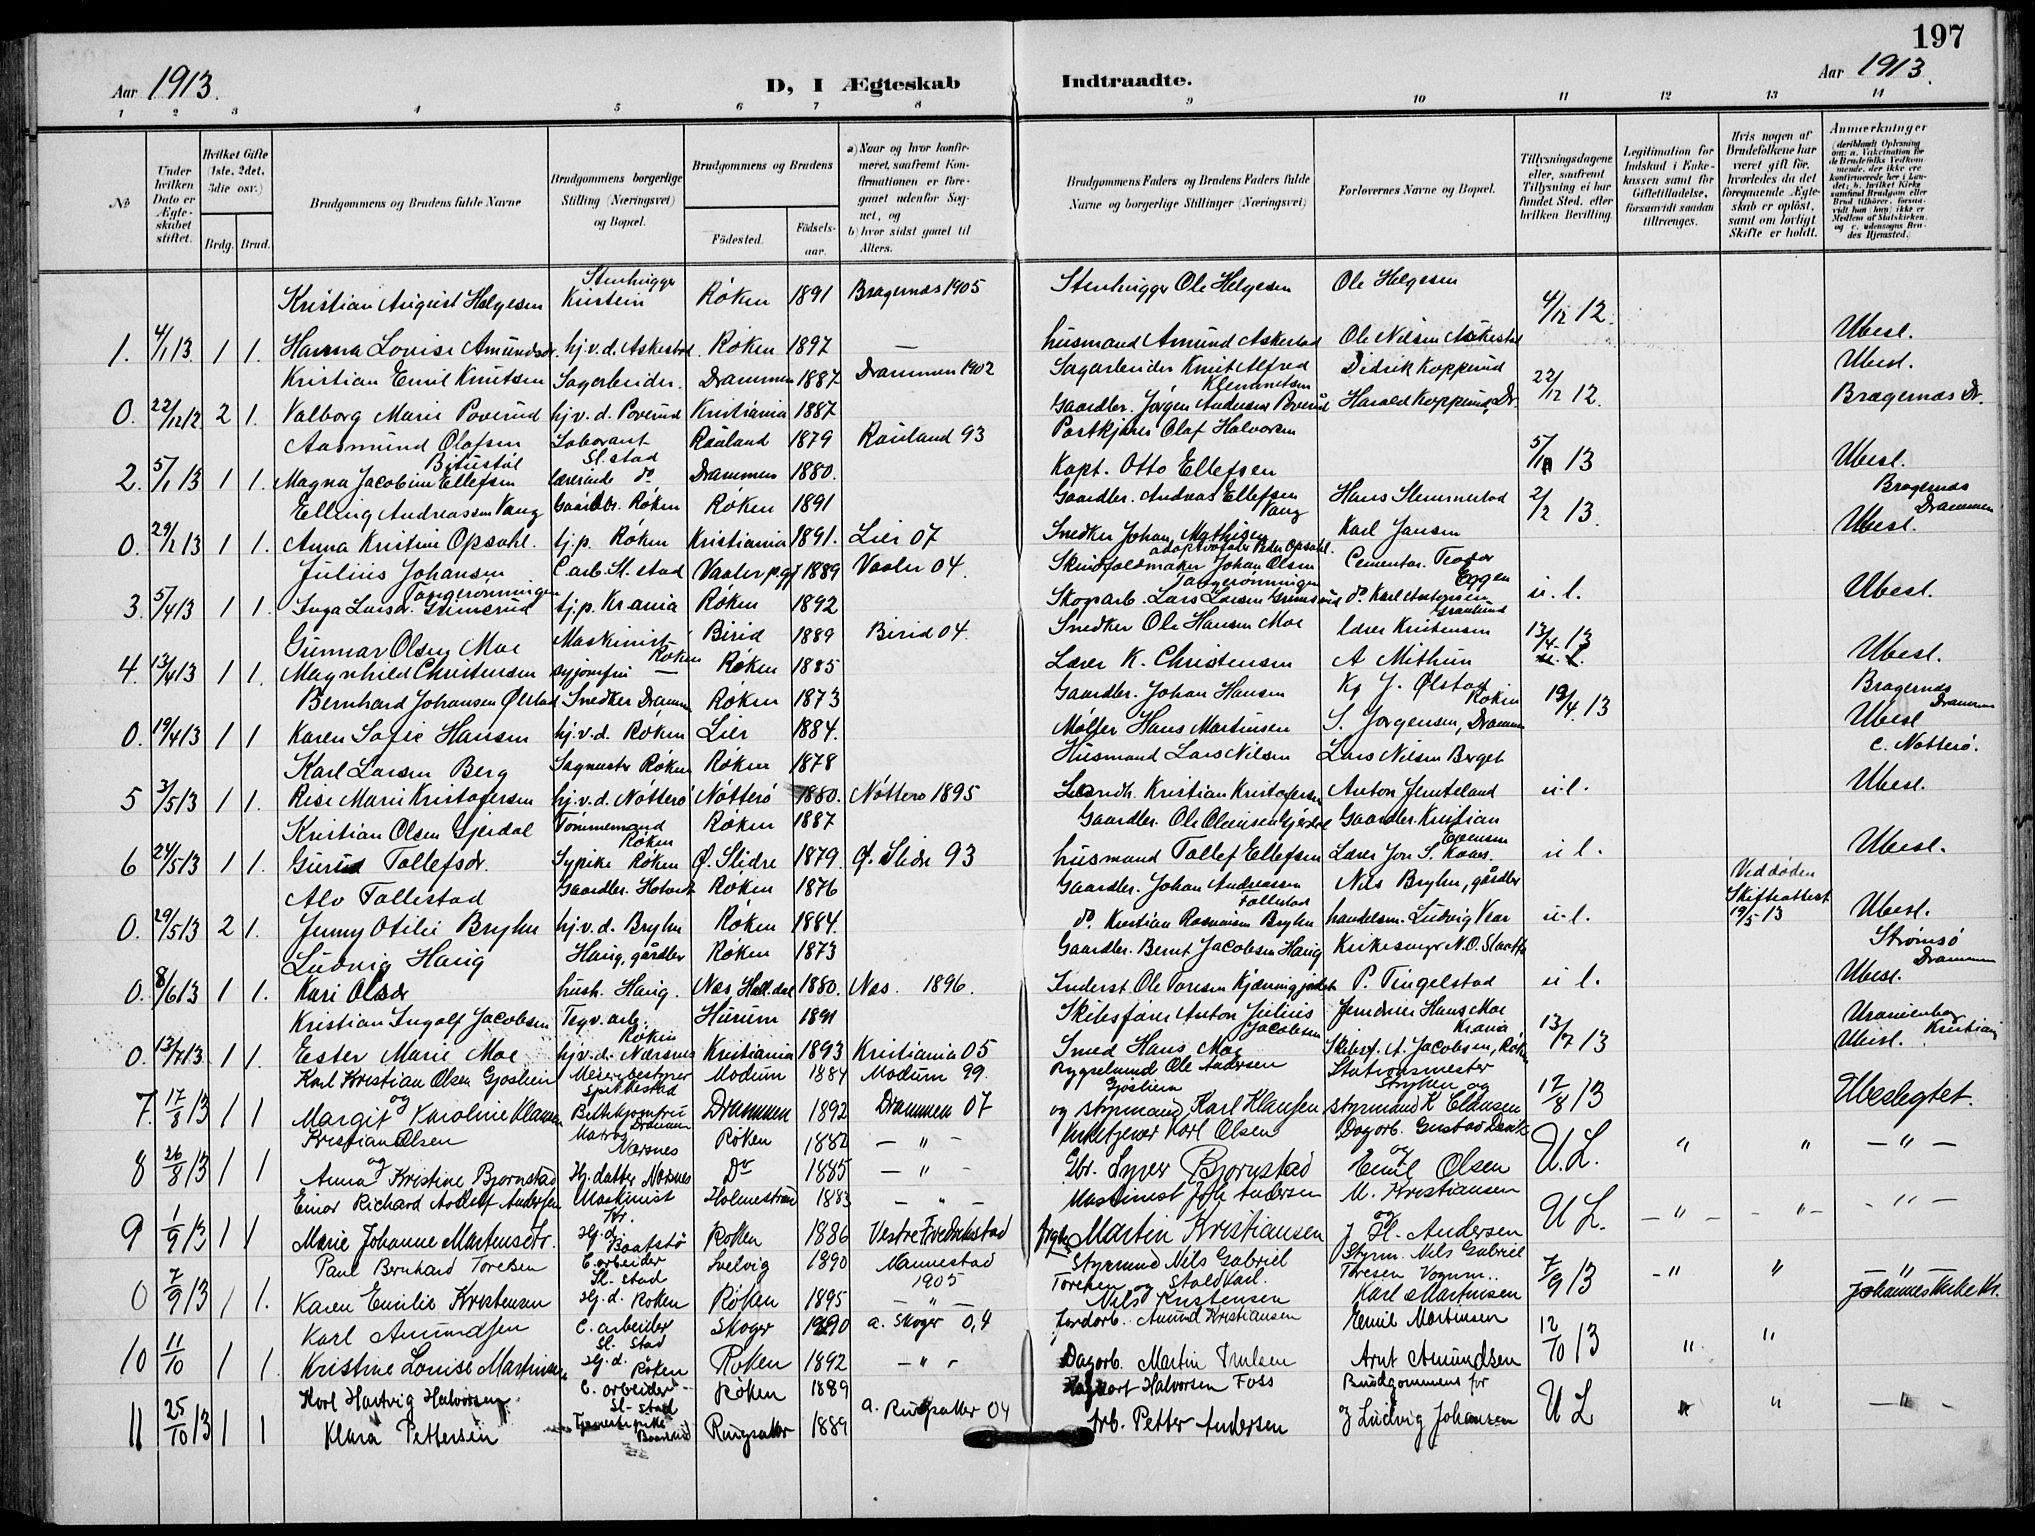 197
Aar 1913.
D, I Ægteskab Indtraadte.
Aar 1913.
1 2 3 4 5 6 7 8 9 10 11 12 13 14
No
Under hvilken Dato er Ægteskabet stiftet.
Hvilket Gifte (1ste, 2det, 3die osv.)
Brdg. Brud.
Brudgommens og Brudens fulde Navne
Brudgommens borgerlige Stilling (Næringsvei) og Bopæl.
Brudgommens og Brudens
Födested.
Födselsaar.
a) Naar og hvor konfirmeret, saafremt Konfirmationen er foregaaet udenfor Sognet, og
b) hvor sidst gaaet til Alters.
Brudgommens Faders og Brudens Faders fulde Navne og borgerlige Stillinger (Næringsvei)
Forlovernes Navne og Bopæl.
Tillysningsdagene eller, saafremt Tillysning ei har fundet Sted, efter hvilken Bevilling.
Legitimation for Indskud i Enkekassen samt for Giftetilladelse, forsaavidt saadan tiltrænges.
Hvis nogen af Brudefolkene har været gift för, hvorledes da det foregaaende Ægteskab er oplöst, samt om lovligt Skifte er holdt.
Anmærkninger
Kristian August Helgesen Stenhugger Kinstein Røken 1891 Bragernæs 1905 Stenhugger Ole Helgesen Ole Helgesen 4/12 12.
1. 4/1 13 1 1. Hanna Lovise Amundsdr. hj.v.d. Askestad Røken 1897 — husmand Amund Askestad Ole Nilsen Askestad Ubesl.
Kristian Emil Knutsen Sagarbeider. Drammen 1887 Drammen 1902 Sagarbeider Knut Alfred Klemmetsen Didrik Kopperud 22/12 12. Ubesl.
0. 22/12 12 2 1. Valborg Marie Poverud hj.v.d. Poverud Kristiania 1887 Gaardbr. Jørgen Andersen Poverud Harald Kopperud, Dr. Bragernæs Dr.
Aasmund Olafsen Bitustøl Laborant Sl. stad Rauland 1879 Rauland 93 Postkjører Olaf Halvorsen 5/1 13
2. 5/1 13 1 1. Magna Jacobine Ellefsen lærerinde do Drammen 1880. Kapt. Otto Ellefsen Ubesl.
Elling Andreassen Vang Gaardbr. Røken Røken 1891 Gaardbr. Andreas Ellefsen Vang Hans Stemmestad 2/2 13. Bragernæs Drammen
0. 29/2 13 1 1. Anna Kristine Opsahl. tj.p. Røken Kristiania 1891. Lier 07 Snedker Johan Mathisen adoptivfader Peder Opsahl. Karl Jansen Ubesl.
Julius Johansen Tangerønningen C. arb. Sl. stad Vaaler p.gj 1889 Vaaler 04. Skindfeldmaker Johan Olsen Tangerønningen Cementar. Teodor Eggen
3. 5/4 13 1 1. Inga Larsdr. Grimsrud tj.p. Krania Røken 1892 Skogarb. Lars Larsen Grimsrud do Karl Antonsen Granlund u. l. Ubesl.
Gunnar Olsen Moe Maskinist Røken Birid 1889 Birid 04. Snedker Ole Hansen Moe Lærer Kristensen 13/4 13
4. 13/4 13 1 1. Magnhild Christensen syjomfru — Røken 1885 Lærer K. Christensen A Mithun Ubesl.
Bernhard Johansen Ølstad Snedker Drammen Røken 1873 Gaardbr. Johan Hansen J. Ølstad Røken 19/4. 13 Bragernæs Drammen
0. 19/4 13 1 1 Karen Sofie Hansen hj.v.d. Røken Lier 1884. Møller Hans Martinsen S. Jørgensen, Drammen Ubesl
Karl Larsen Berg Sagmester Røken Røken 1878 Husmand Lars Nilsen Lars Nilsen Berget c. Nøtterø.
5 3/5 13 1 1. Rise Marie Kristofersen hj.v.d. Nøtterø Nøtterø 1880. Nøtterø 1895 Kristian Kristofersen Anton Jemteland u. l. Ubesl.
Kristian Olsen Gjerdal Tømmermand Røken Røken 1887 Gaardbr. Ole Evensen Gjerdal Gaardbr. Kristian Evensen
6 24/5 13 1 1 Guru Tollefsdr. Sypike Røken Ø. Slidre 1879. Ø. Slidre 93 husmand Tollef Ellefsen Lærer Jon S. Kaas. u. l. Ubesl.
Alv Tollestad Gaardbr. Hovet Røken 1876 Gaardbr. Johan Andreassen Follestad Nils Bryhn, gårdbr Ved døden Skifteattest 19/5 13
0. 29/5 13 2 1. Jenny Otilie Bryhn hj.v.d. Bryhn Røken 1884. do. Kristian Rasmussen Bryhn handelsm. Ludvig Vear u. l. Ubesl.
Ludvig Haug Haug, gårdbr Røken 1873 Gaardbr. Bernt Jacobsen Haug Kirkesanger N. O. Strømsø Drammen
0. 8/6 13 1 1. Kari Olsdr hush. Haug. Næs Hall.dal 1880. Næs. 1896. Inderst Ole Toresen Kjærringjordet P. Tingelstad u. l. Ubesl.
Kristian Ingolf Jacobsen Tegv. arb. Røken Hurum 1891 Skibsfører Anton Julius Jacobsen Hans Moe Krania 13/7 13 Uranienborg Kristiania
0. 13/7 13 1 1 Ester Marie Moe hj.v.d. Nærsnes Kristiania 1893 Kristiania 05 Smed Hans Moe Skibsf. A. Jacobsen, Røken Ubesl.
Karl Kristian Olsen Gjøslien Meieribestyrer Spikkestad Modum 1884 Modum 99. Rygselmd Ole Andersen Gjøslien Stationsmester Stryken og 17/8 13
7. 17/8 13 1 1 og Margit Karoline Klausen Drammen Drammen 1892 Drammen 07 og styrmand Karl Klausen styrmand K Clausen Ubeslegtet.
Kristian Olsen Matros Nærsnes Røken 1882 — " — Kirketjener Karl Olsen Dagarb. Gustav
8 26/8 13 1 1 og Anna Kristine Bjørnstad Hj. datter Nærsnes Do 1885 — " — Gbr. Syver Bjørnstad og Emil Olsen U. L. " " — " —
Einar Richard Adolf Andersen Maskinist Kr. Holmestrand 1883 — " — Maskinist Joh Andersen M. Kristiansen
9 1/9 13 1 1 Marie Johanne Martinsdtr. Hj. d. Baatstø Røken 1886 Vestre Fredrikstad Martin Kristiansen og J H. Andersen U L. — " — — " — — " —
Paul Bernhard Toresen C. arbeider Sl. stad Svelvig 1890 Mannestad 1905 Styrmand Nils Gabriel Toresen og Staldkarl. Styrm. Nils Gabriel Toresen Vognm. 7/9 13
0 7/9 13 1 1. Karen Emilie Kristensen Hj. d. Røken Røken 1895 — " — Nils Kristensen Karl Martinsen — " " " Johannes Kirke Kr.
Karl Amundsen C. arbeider Sl. Stad Skoger 1890 a. Skoger 0,4 Jordarb. Amund Kristiansen Emil Martinsen 12/10 13
10 11/10 1 1 Kristine Louise Martinsen Hj. d. Røken Røken 1892 — " — Dagarb. Martin Trulsen Arnt Amundsen " "
Karl Hartvig Halvorsen C. arbeider Sl. stad Røken 1889 Halvorsen Foss Brudgommens far
11 25/10 13 1 1 Klara Pettersen Tjenestepike Ringsaker 1889 a. Ringsaker 04 Arb. Petter Andersen og Ludvig Johansen U L " " — " —